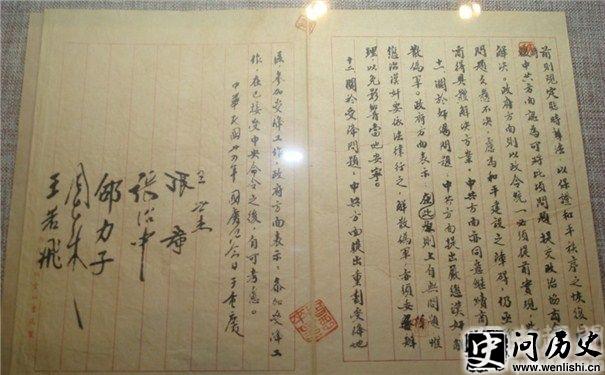 前則規定臨時辦法，以保證和平秩序之恢復
中共方面認為可將此項問題，提交政治協商
解决。政府方面則以政令統一必須提前實現，
問題久懸不决，慮為和平建設之障礙，仍亟
商得具體解决方案。中共方面亦同意繼續商
十一 關於奸偽問題，中共方面提出嚴懲漢奸解
散偽軍。政府方面表示：在此原則上自無問題，惟
懲治漢奸要依法律行之，解散偽軍亦須妥慎辦
理，以免影響當地安寧。
十二 關於受降問題，中共方面提出重劃受降地
區參加受降工作，政府方面表示：參加受降工
作，在已接受中央命令之後，自可考慮。
中華民國卅四年國慶紀念日于重慶
王世杰
張羣
張治中
邵力子
周恩來
王若飛
问历史
www.wenlishi.cn